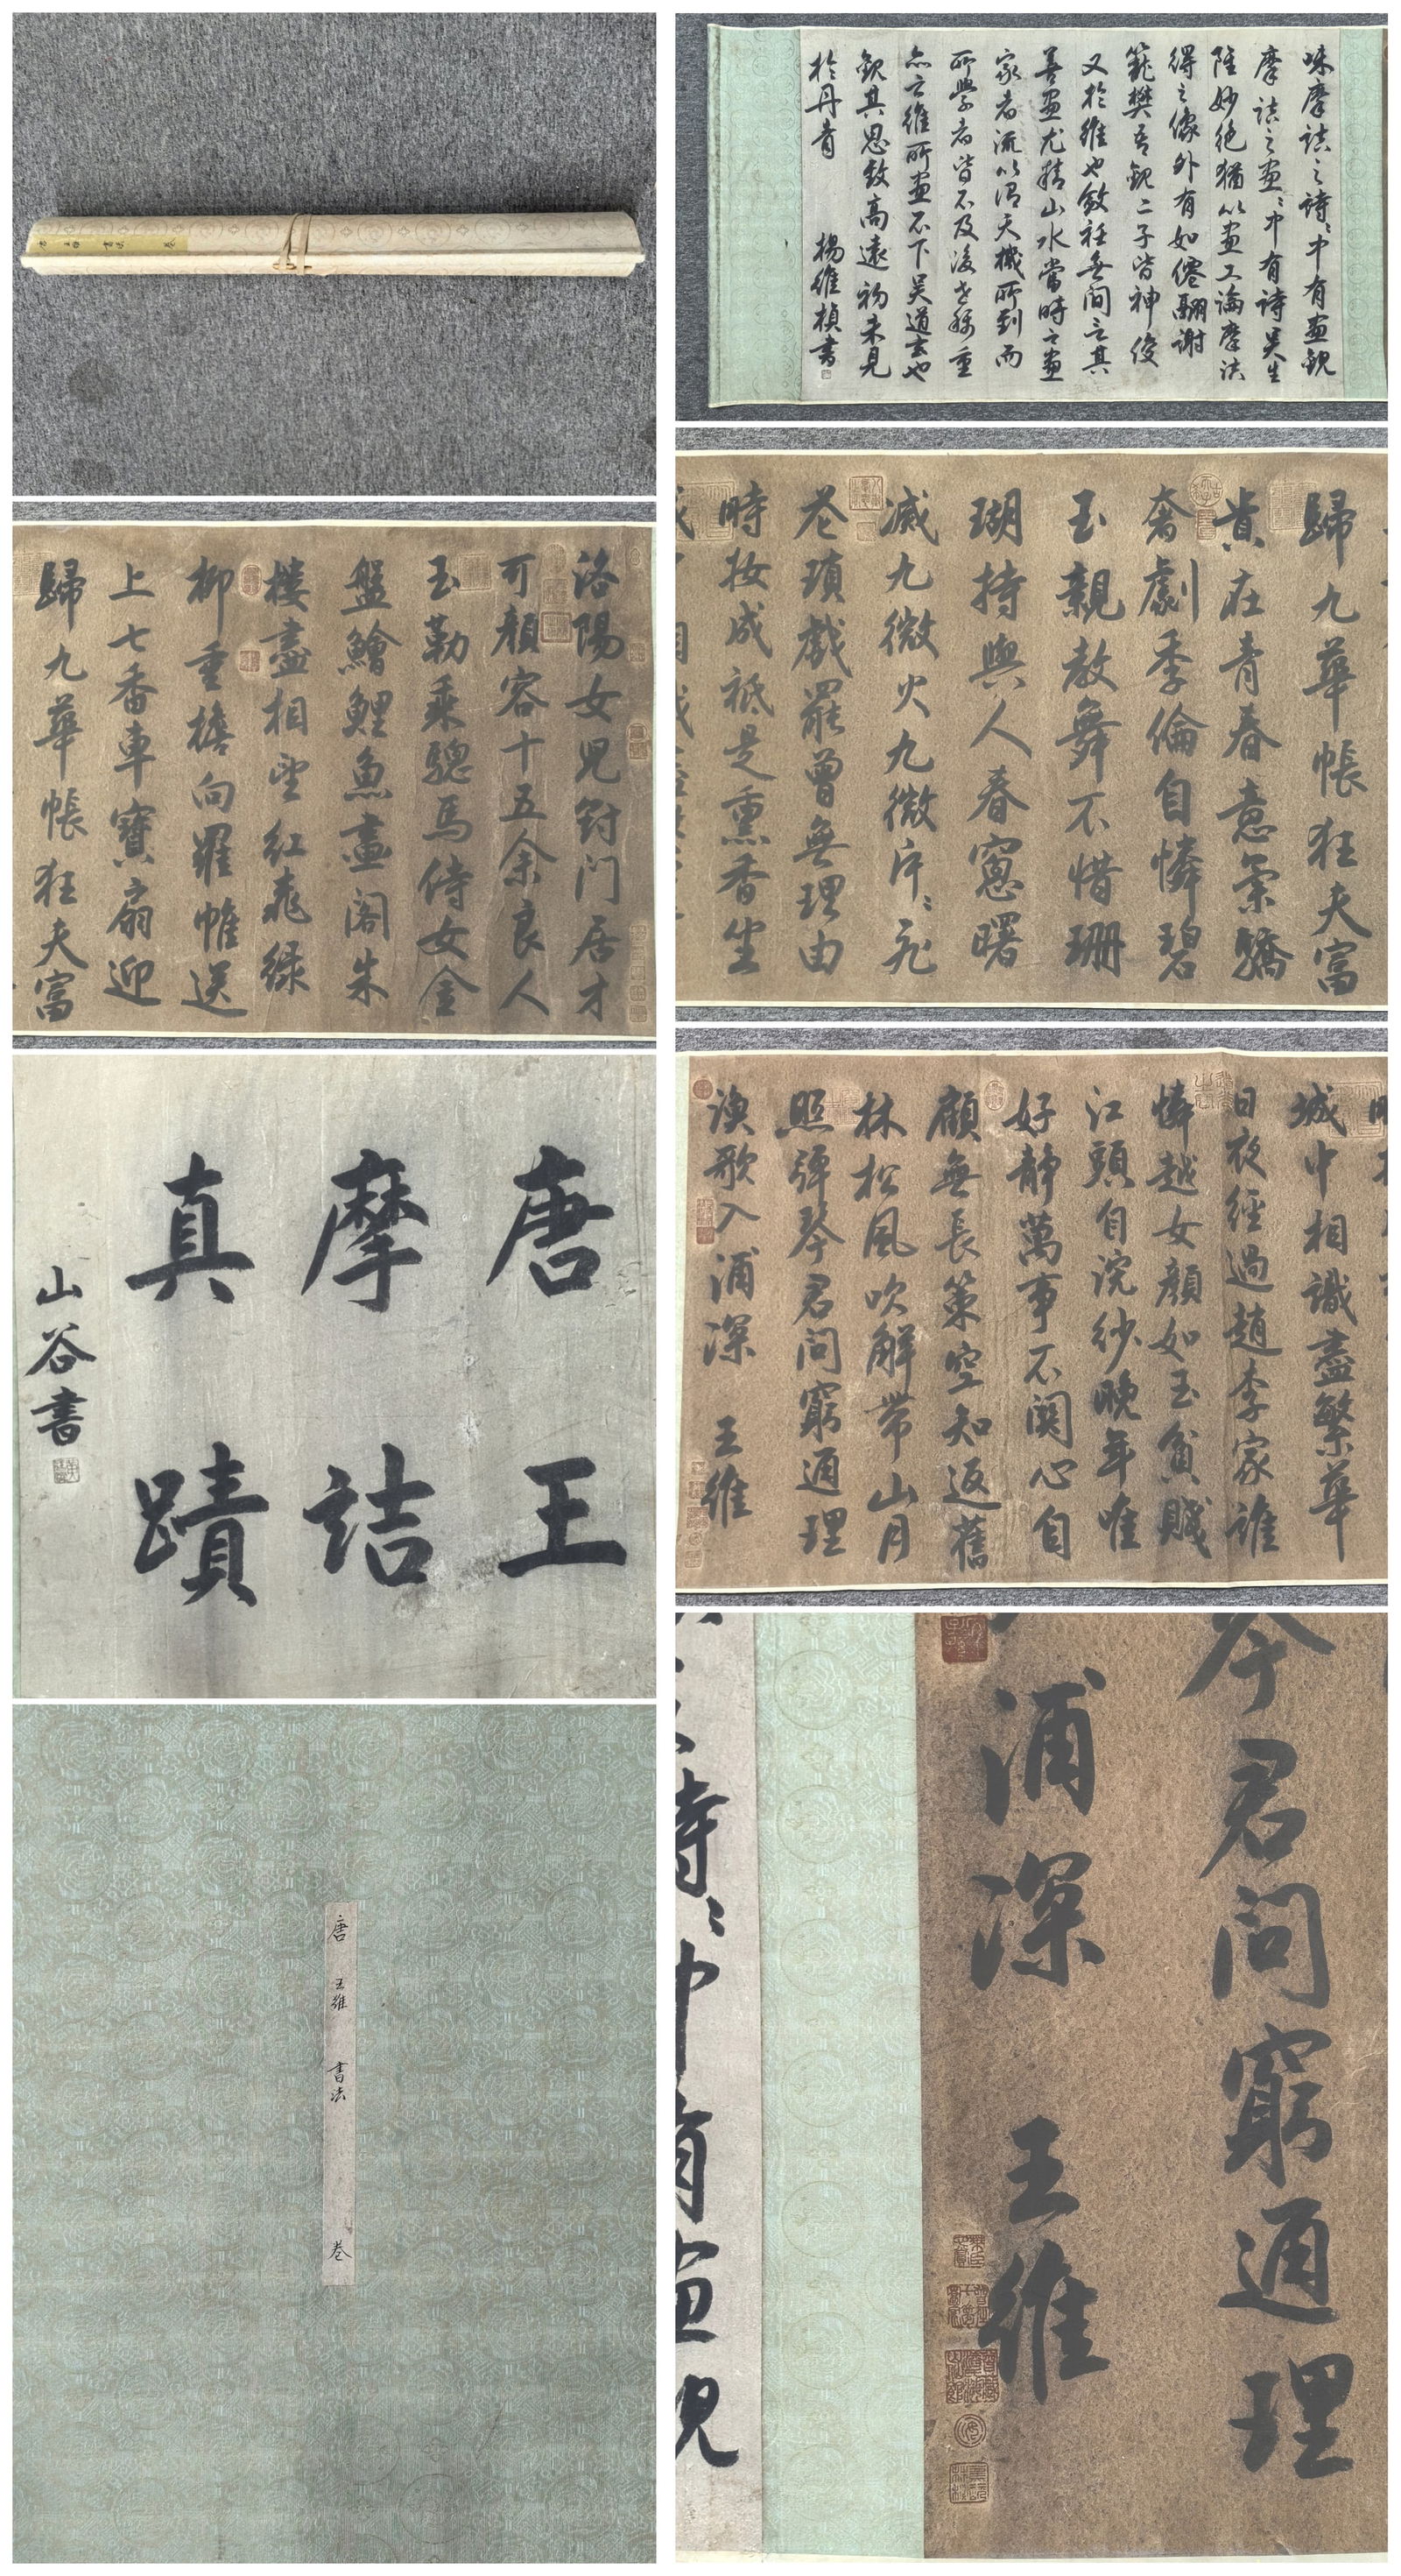 唐 王維 書法 卷
唐王
摩詰
真蹟
山谷書
洛陽女兒對門居才
可顏容十五余良人
玉勒乘驄馬侍女金
盤鱠鯉魚畫閣朱
樓盡相望紅桃綠
柳垂檐向羅帷送
上七香車寶扇迎
歸九華帳狂夫富
歸九華帳狂夫富
貴在青春意氣驕
奢劇季倫自憐碧
玉親教舞不惜珊
瑚持與人春窗曙
滅九微火九微片〻飛
花瑣戲罷曾無理由
時妝成祗是熏香坐
城中相識盡繁華
日夜經過趙李家誰
憐越女顏如玉貧賤
江頭自浣紗晚年唯
好靜萬事不關心自
顧無長策空知返舊
林松風吹解帶山月
照彈琴君問窮通理
漁歌入浦深 王維
味摩詰之詩〻中有畫觀
摩詰之畫〻中有詩吳生
雖妙絕猶以畫工論摩詰
得之像外有如僊翮謝
籠樊吾觀二子皆神俊
又於維也斂衽無間言其
善畫尤精山水當時之畫
家者流以謂天機所到而
所學者皆不及後世稱重
亦云維所畫不下吳道玄也
觀其思致高遠初未見
於丹青 楊維楨書
君問窮通理
浦深 王維